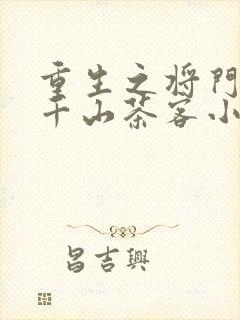 重生之将门
千山茶客小
昌吉興